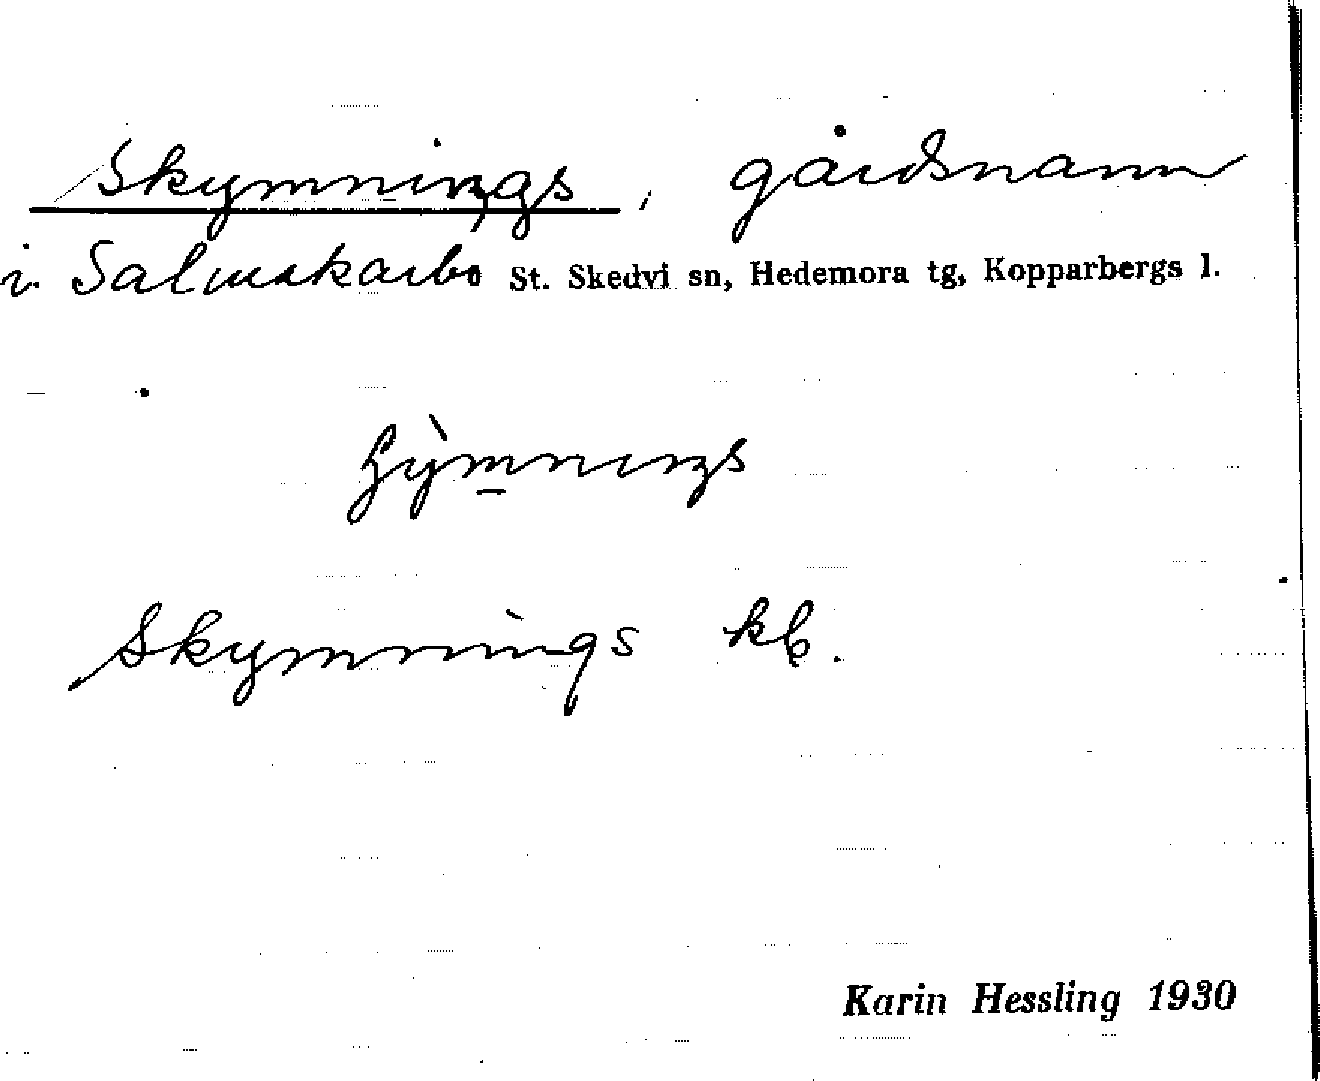 Skymnings, gårdsnamn
i Salmakarbo St. Skedvi sn, Hedemora tg, Kopparbergs l.
Skymnings kb.
Karin Hessling 1930